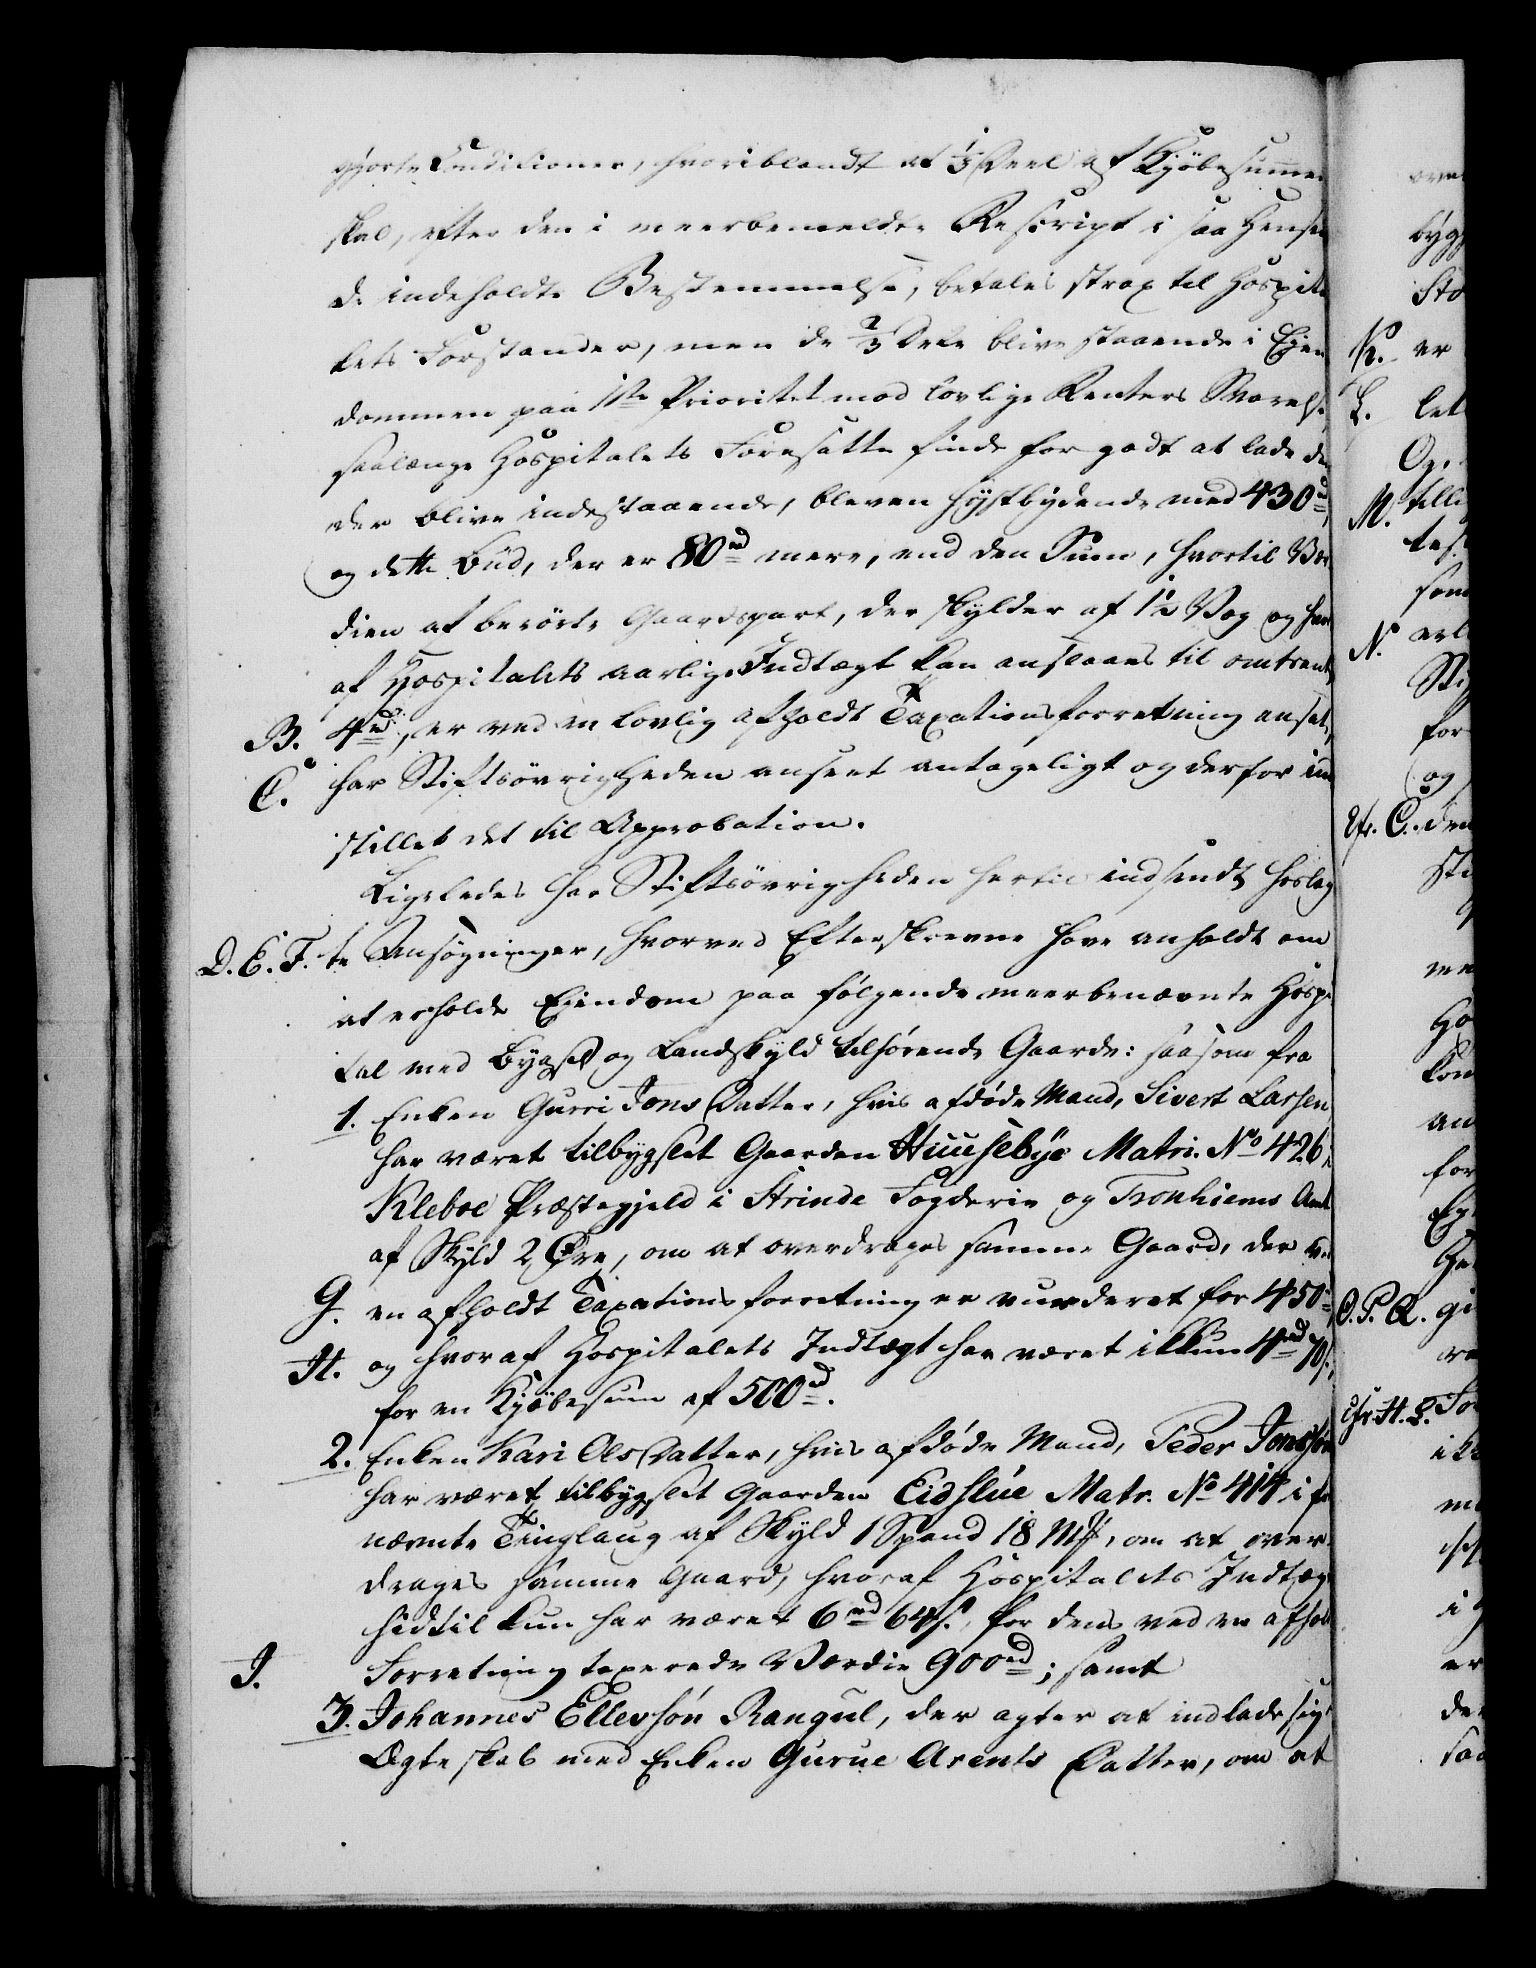 gjorte Conditioner, hvoriblandt at 1/3 Deel af Kjöbesummen
skal, efter den i meerbemeldte Rescript i saa Hense
de indeholdte Bestemmelse, betales strax til Hospita
lets Forstander, men de 2/3 Dele blive staaende i Eien
dommen paa 1ste Prioritet mod lovlige Renters Svarelse,
saalænge Hospitalets Foresatte finde for godt at lade de
der blive indestaaende, bleven høystbydende med 430rd,
og dette Bud, der er 80rd mere, end den Sum, hvortil Vær
dien af berörte Gaardspart, der skylder af 1 1/2 Vog og hvor
af Hospitalets aarlige Indtægt kan anslaaes til omtrent
B. 4rd, er ved en lovlig afholdt Taxationsforretning ansat,
C. har Stiftsövrigheden anseet antageligt og derfor ind
stillet det til Approbation.
Ligeledes har Stiftsövrigheden hertil indsendt hoslag
D. E. F. te Ansøgninger, hvorved Efterskrevne have anholdt om
at erholde Eiendom paa følgende meerbenævnte Hospi
tal med Bygsel og Landskyld tilhørende Gaarde: saasom fra
1. Enken Gurri Jons Datter, hvis afdøde Mand, Sivert Larsen
har været tilbygslet Gaarden Huusebye Matri. No 426 i
Kleboe Præstegjeld i Strinde Fogderie og Tronhiems Amt
af Skyld 2 Øre, om at overdrages samme Gaard, der ved
G. en afholdt Taxationsforretning er vurderet for 450rd,
H. og hvoraf Hospitalets Indtægt har været ikkun 4rd 70s.,
for en Kjöbesum af 500rd.
2. Enken Kari Ols Datter, hvis afdøde Mand, Peder Jonsøn
har været tilbygslet Gaarden Eidslüe Matr. No 414 i for
nævnte Tinglaug af Skyld 1 Spand 18 Mk, om at over
drages samme Gaard, hvoraf Hospitalets Indtægt
hidtil kun har været 6rd 64s. for dens ved en afhol
I. Forretning taxerede Værdie 900rd; samt
3. Johannes Ellevsön Rangul, der agter at indlade sig i
Ægteskab med Enken Gurue Arents Datter, om at
bygg
Sto
K. er
L. let
Og
M. tilli
N. erl
for
og
Cfr. C. den
Ho
an
for
O. P. Q. gi
Cfr. H. L.
i
er
de